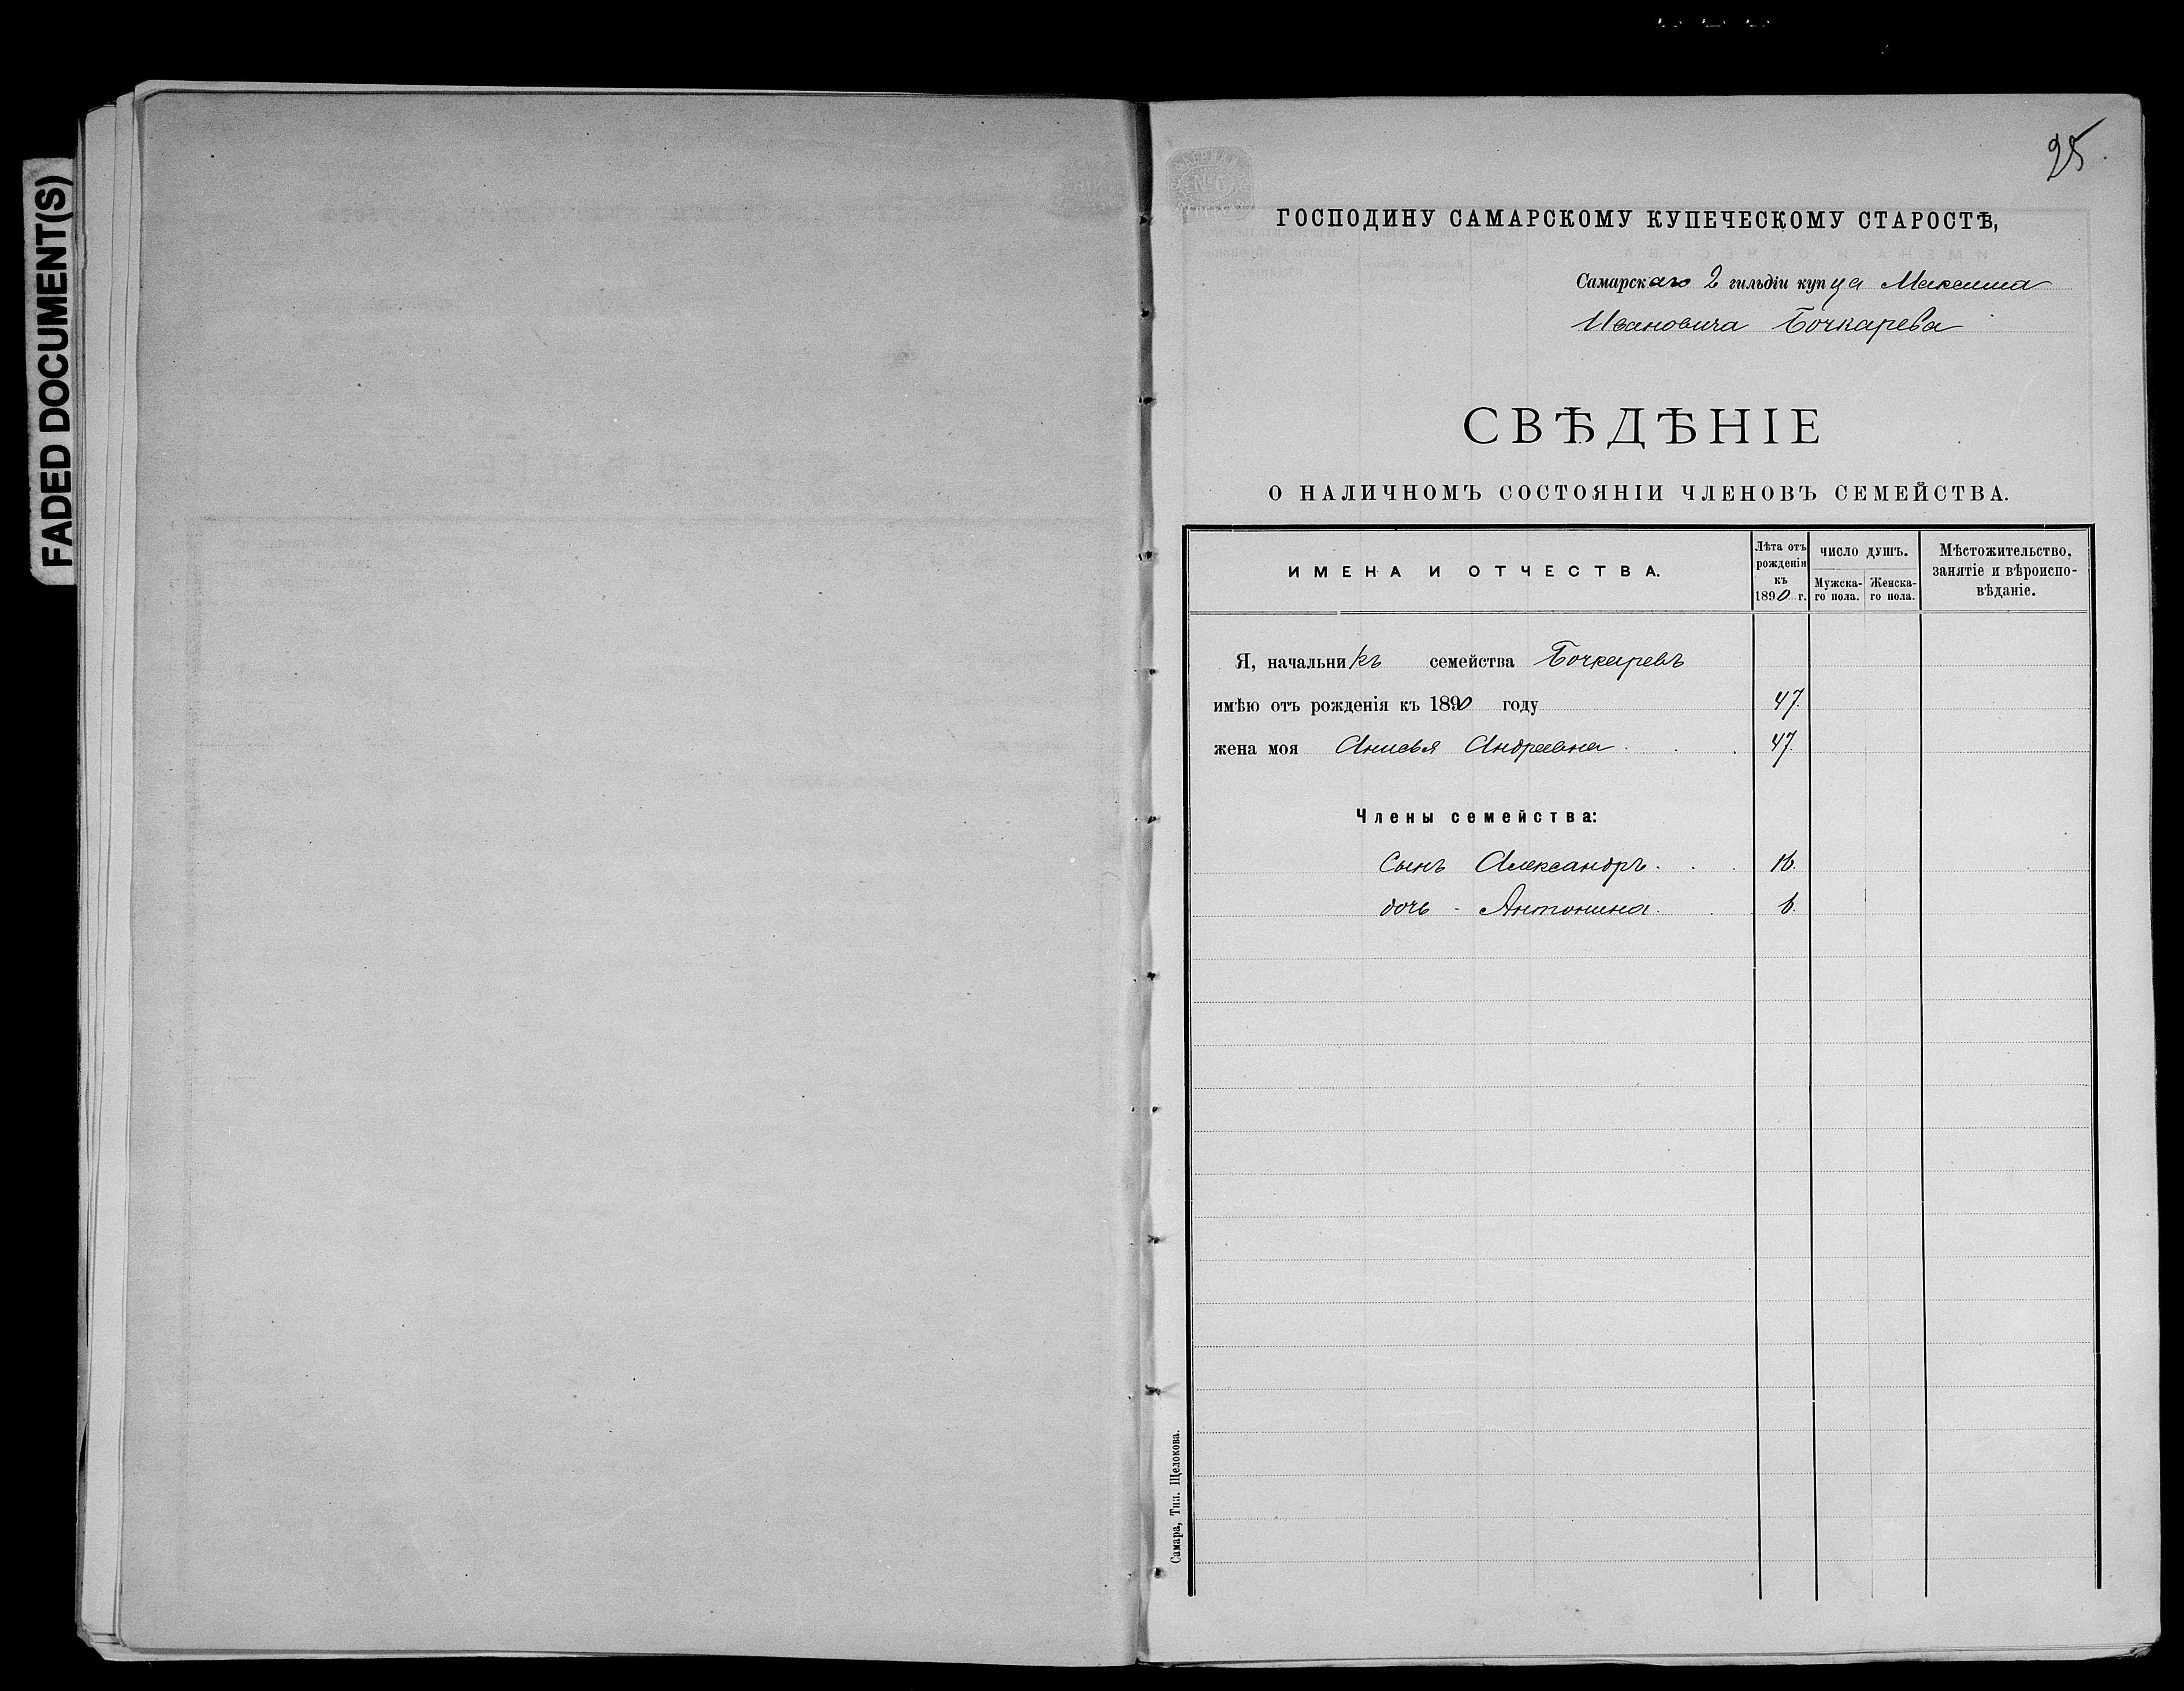 FADED DOCUMENT(S)
25.
ГОСПОДИНУ САМАРСКОМУ КУПЕЧЕСКОМУ СТАРОСТѢ,
Самарскаго 2 гильдіи купца Максима
Ивановича Бочкарева
СВѢДѢНІЕ
О НАЛИЧНОМЪ СОСТОЯНІИ ЧЛЕНОВЪ СЕМЕЙСТВА.
ИМЕНА И ОТЧЕСТВА.
Лѣта отъ рожденія къ 1890 г.
ЧИСЛО ДУШЪ.
Мужска-го пола.
Женска-го пола.
Мѣстожительство, занятіе и вѣроиспо-вѣданіе.
Я, начальникъ семейства Бочкаревъ
имѣю отъ рожденія къ 1890 году 47.
жена моя Анисья Андреевна 47.
Члены семейства:
Сынъ Александръ 16.
дочь - Антонина 6.
Самара, Тип. Щелокова.